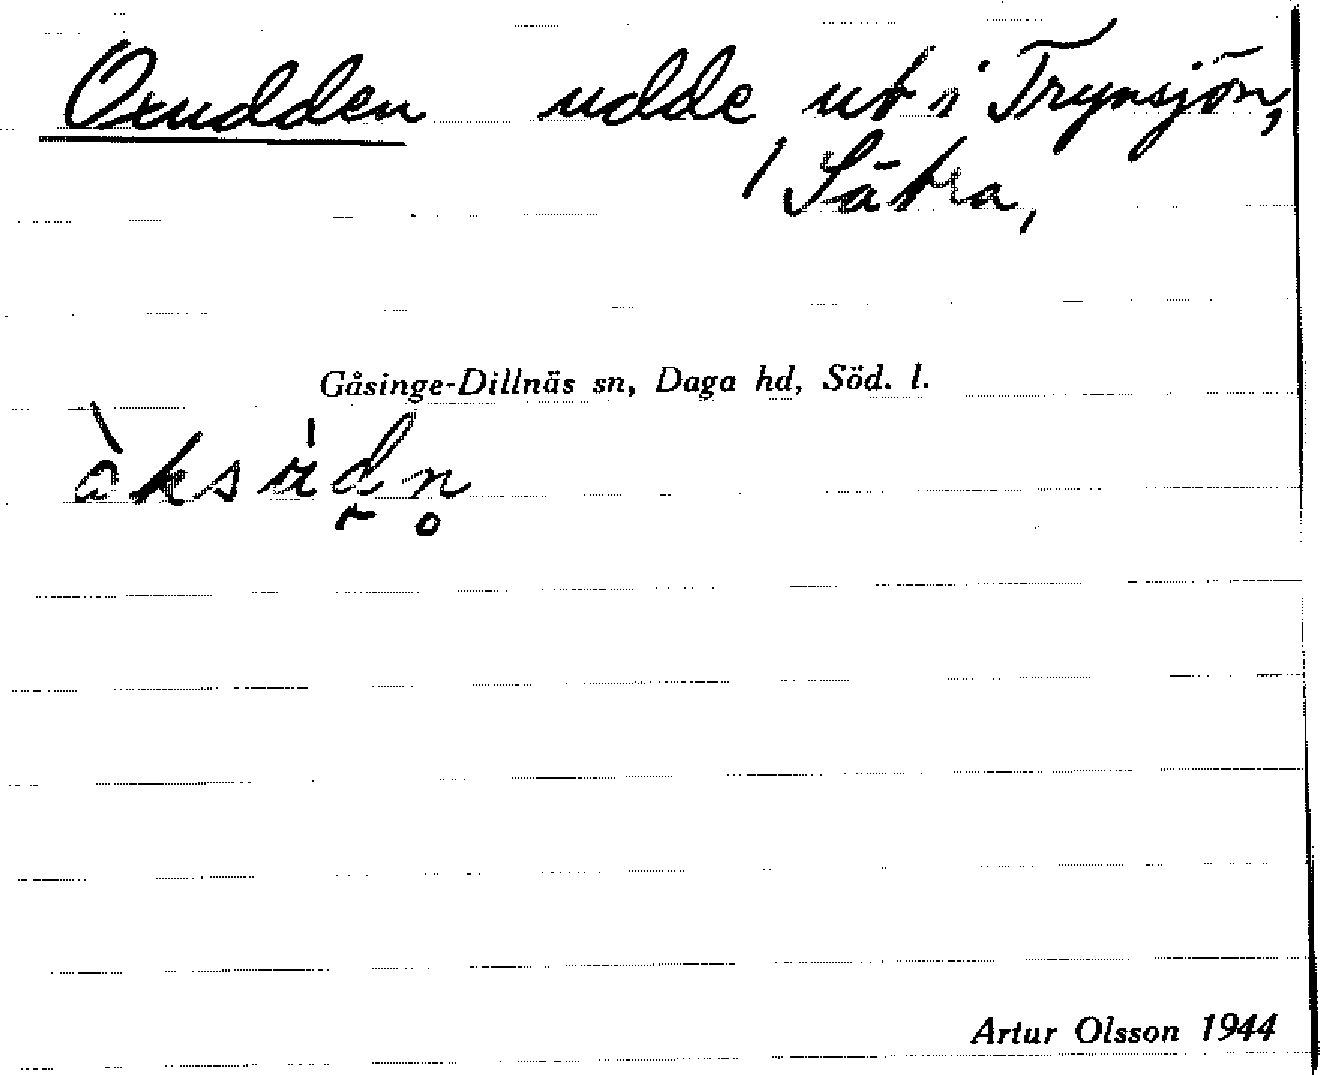 Oxudden udde ut i Trynsjön,
/ Sätra,
Gåsinge-Dillnäs sn, Daga hd, Söd. l.
Artur Olsson 1944